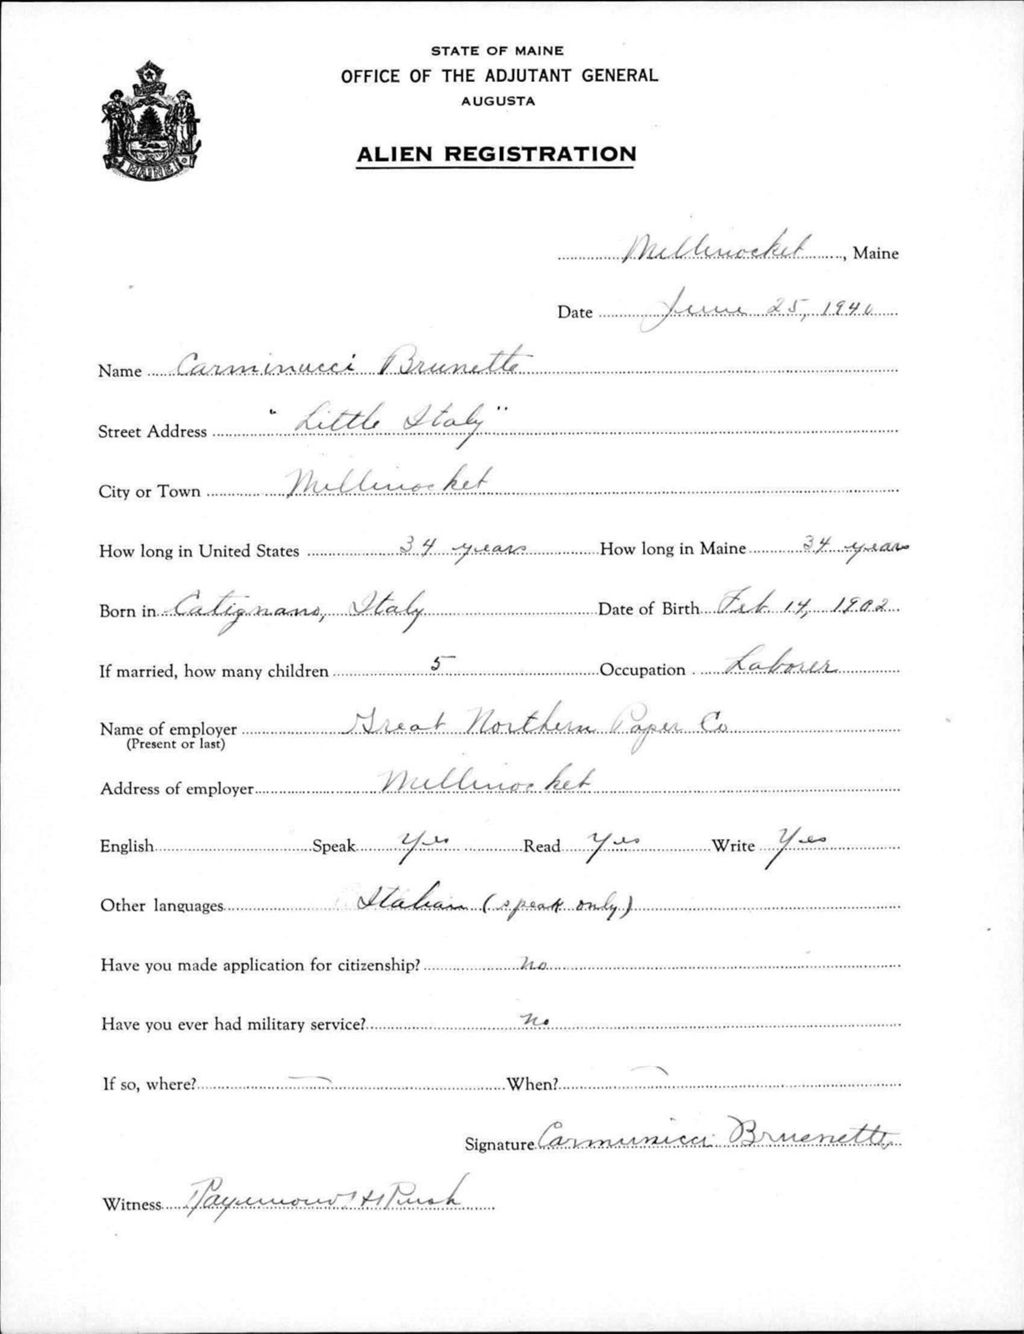 STATE OF MAINE
OFFICE OF THE ADJUTANT GENERAL
AUGUSTA
ALIEN REGISTRATION
MAINE
Millinocket, Maine
Date June 25, 1940
Name Carminucci Brunette
Street Address "Little Italy"
City or Town Millinocket
How long in United States 34 years How long in Maine 34 years
Born in Catignano, Italy Date of Birth Feb 14, 1902
If married, how many children 5 Occupation Laborer
Name of employer Great Northern Paper Co
(Present or last)
Address of employer Millinocket
English Speak Yes Read Yes Write Yes
Other languages Italian (speak only)
Have you made application for citizenship? no
Have you ever had military service? no
If so, where? — When? —
Signature Carmunicci Bruenette
Witness Raymond H Rush